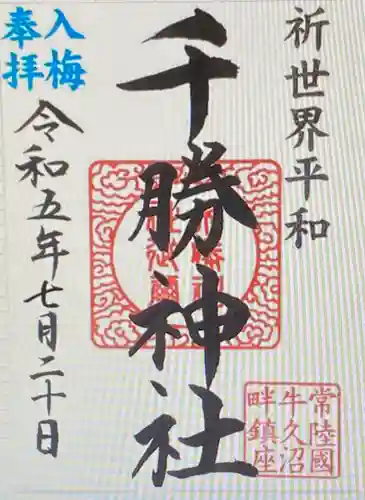 祈世界平和
千勝神社
入梅
奉拝
令和五年七月二十日
常陸國
牛久沼
畔鎮座